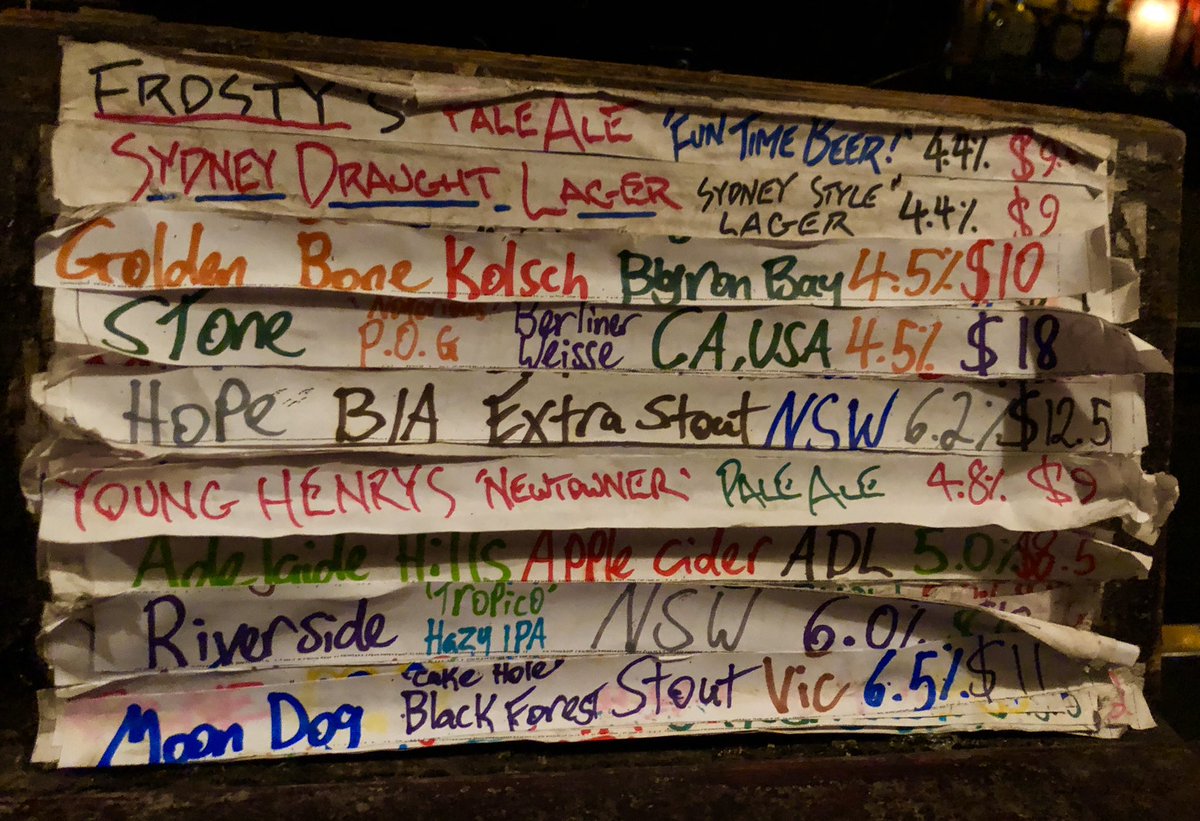 FROSTY's PALE ALE 'FUN TIME BEER!" 4.4% $9
SYDNEY DRAUGHT LAGER SYDNEY STYLE" LAGER 4.4% $9
Golden Bone Kolsch Byron Bay 4.5% $10
STONE 'Notorious' P.O.G Berliner Weisse CA, USA 4.5% $18
HOPE B/A Extra Stout NSW 6.2% $12.5
YOUNG HENRYS 'NEWTOWNER' PALE ALE 4.8% $9
Adelaide Hills Apple Cider ADL 5.0% $8.5
Riverside 'Tropico' Hazy IPA NSW 6.0%
Moon Dog 'Cake Hole' Black Forest Stout Vic 6.5% $11